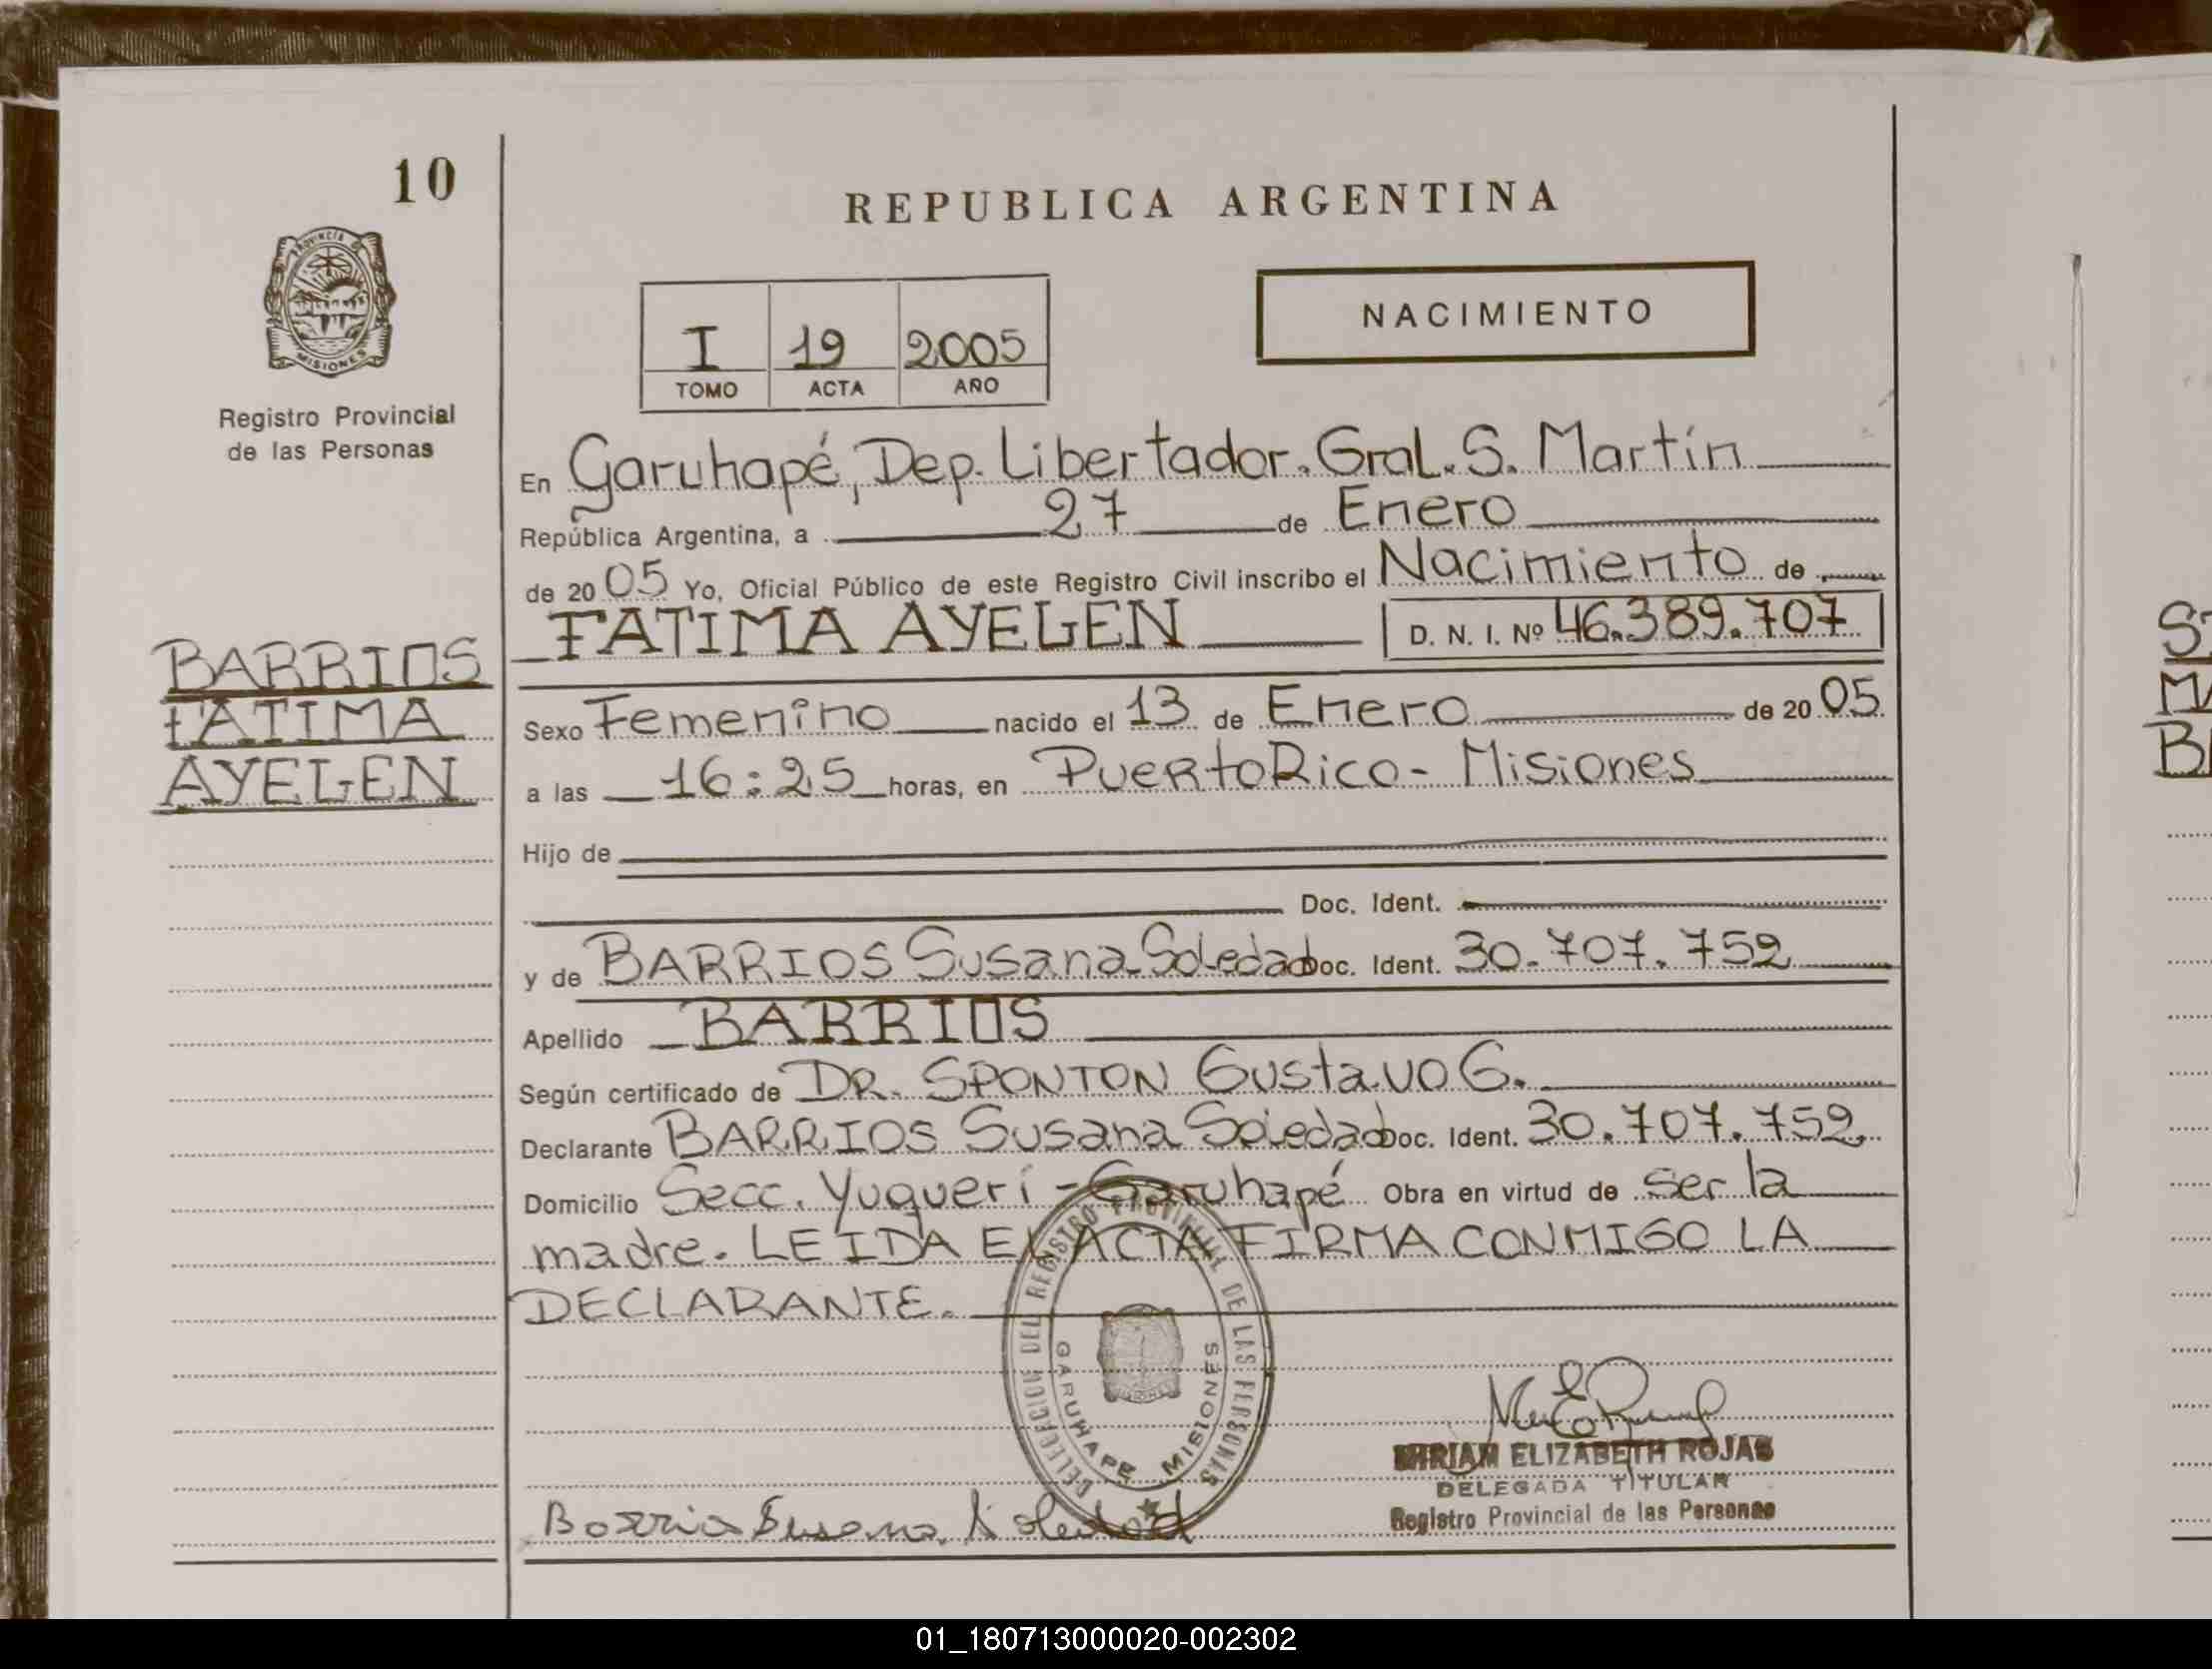 10
REPUBLICA ARGENTINA
PROVINCIA DE
MISIONES
Registro Provincial
de las Personas
NACIMIENTO
I 19 2005
TOMO ACTA AÑO
En Garuhapé, Dep. Libertador. Gral. S. Martín
República Argentina, a 27 de Enero
de 2005 Yo, Oficial Público de este Registro Civil inscribo el Nacimiento de
FATIMA AYELEN D. N. I. Nº 46.389.707
BARRIOS
FATIMA
AYELEN
Sexo Femenino nacido el 13 de Enero de 2005
a las 16:25 horas, en Puerto Rico - Misiones
Hijo de
Doc. Ident.
y de BARRIOS Susana Soledad Doc. Ident. 30.707.752
Apellido BARRIOS
Según certificado de DR. SPONTON Gustavo G.
Declarante BARRIOS Susana Soledad Doc. Ident. 30.707.752
Domicilio Secc. Yuquerí - Garuhapé Obra en virtud de ser la
madre. LEIDA EL ACTA FIRMA CONMIGO LA
DECLARANTE.
DELEGACION DEL REGISTRO PROVINCIAL DE LAS PERSONAS
GARUHAPE MISIONES
MIRIAM ELIZABETH ROJAS
DELEGADA TITULAR
Registro Provincial de las Personas
Barrios Susana Soledad
01_180713000020-002302